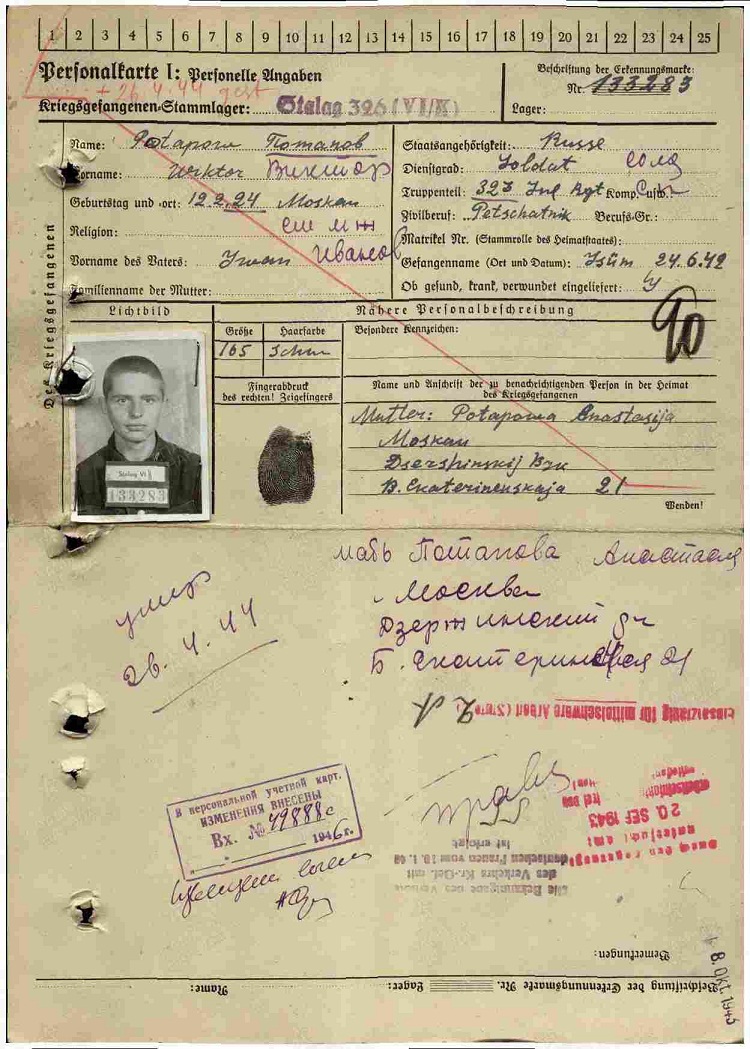 1 2 3 4 5 6 7 8 9 10 11 12 13 14 15 16 17 18 19 20 21 22 23 24 25
Personalkarte I: Personelle Angaben
Beschriftung der Erkennungsmarke:
Nr. 133283
+ 26.4.44 gest
Kriegsgefangenen-Stammlager: Stalag 326 (VI/K)
Lager:
Des Kriegsgefangenen
Name: Potapow Потапов
Vorname: Wiktor Виктор
Geburtstag und -ort: 12.2.24 Moskau
Religion:
Vorname des Vaters: Iwan Иванов
Familienname der Mutter:
Staatsangehörigkeit: Russe
Dienstgrad: Soldat солд
Truppenteil: 323 Inf Rgt Komp. usw.:
Zivilberuf: Petschatnik Berufs-Gr.:
Matrikel Nr. (Stammrolle des Heimatstaates):
Gefangennahme (Ort und Datum): Isüm 24.6.42
Ob gesund, krank, verwundet eingeliefert:
Lichtbild
Nähere Personalbeschreibung
Größe
Haarfarbe
165
Besondere Kennzeichen:
90
Fingerabdruck
des rechten! Zeigefingers
Name und Anschrift der zu benachrichtigenden Person in der Heimat
des Kriegsgefangenen
Mutter: Potapowa Anastasija
Moskau
Dsershinskij
B. Ekaterinenskaja 21
Wenden!
Stalag VI K
133283
мать Потапова Анастасия
Москва
Дзержинский
Б. Екатерининская 21
умер
26.4.44
Einsatzfähig für mittelschwere Arbeit
В персональной учетной карт.
ИЗМЕНЕНИЯ ВНЕСЕНЫ
Вх. № 49888с
1946г.
20. SEP 1943
Die Bekanntgabe des Verbots
des Verkehrs Kr.-Gef. mit
deutschen Frauen vom 10.1.42
ist erfolgt
Bemerkungen:
8. Okt. 1943
Name:
Lager:
Beschriftung der Erkennungsmarke Nr.